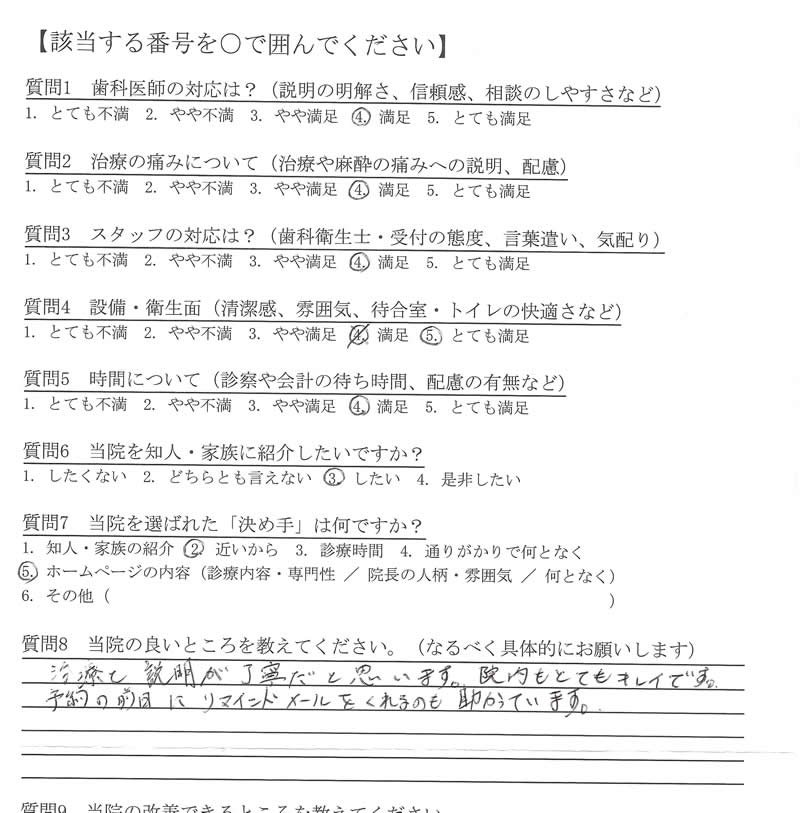 【該当する番号を○で囲んでください】
質問1 歯科医師の対応は？（説明の明解さ、信頼感、相談のしやすさなど）
1. とても不満 2. やや不満 3. やや満足 4. 満足 5. とても満足
質問2 治療の痛みについて（治療や麻酔の痛みへの説明、配慮）
1. とても不満 2. やや不満 3. やや満足 4. 満足 5. とても満足
質問3 スタッフの対応は？（歯科衛生士・受付の態度、言葉遣い、気配り）
1. とても不満 2. やや不満 3. やや満足 4. 満足 5. とても満足
質問4 設備・衛生面（清潔感、雰囲気、待合室・トイレの快適さなど）
1. とても不満 2. やや不満 3. やや満足 4. 満足 5. とても満足
質問5 時間について（診察や会計の待ち時間、配慮の有無など）
1. とても不満 2. やや不満 3. やや満足 4. 満足 5. とても満足
質問6 当院を知人・家族に紹介したいですか？
1. したくない 2. どちらとも言えない 3. したい 4. 是非したい
質問7 当院を選ばれた「決め手」は何ですか？
1. 知人・家族の紹介 2. 近いから 3. 診療時間 4. 通りがかりで何となく
5. ホームページの内容（診療内容・専門性 ／ 院長の人柄・雰囲気 ／ 何となく）
6. その他（ ）
質問8 当院の良いところを教えてください。（なるべく具体的にお願いします）
治療も説明が丁寧だと思います。院内もとてもキレイです。
予約の前日にリマインドメールをくれるのも助かっています。
質問9 当院の改善できるところを教えてください